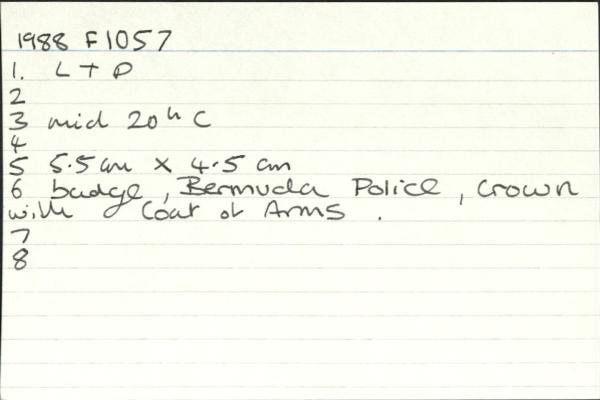 1988 F1057
1. L + D
2
3 mid 20th C
4
5 5.5cm × 4.5 cm
6 badge, Bermuda Police, crown
with Coat of Arms.
7
8